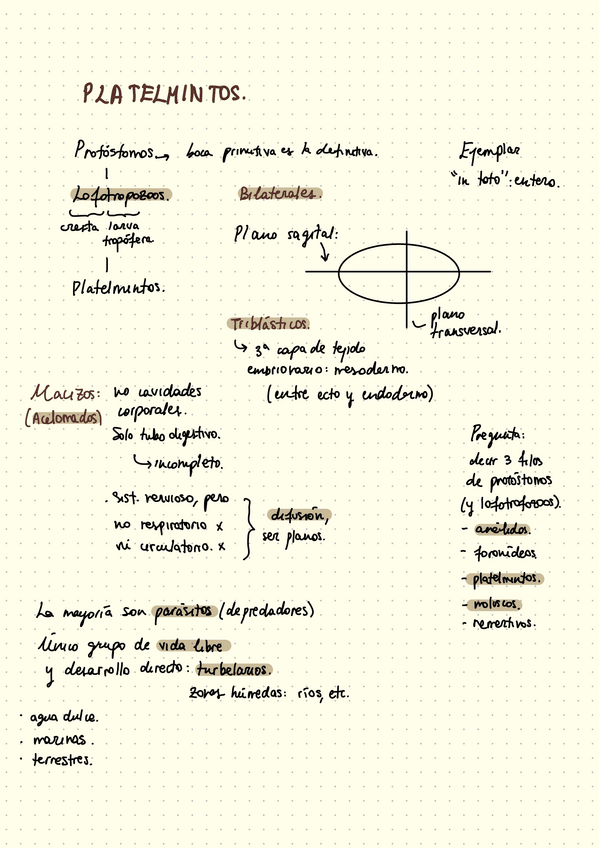 PLATELMINTOS.
Protóstomos → boca primitiva es la definitiva.
Lofotropozoos.
cresta larva
tropófera
Platelmintos.
Ejemplar
"in toto": entero.
Bilaterales.
Plano sagital:
plano
transversal.
Triblásticos.
↳ 3ª capa de tejido
embrionario: mesodermo.
(entre ecto y endodermo)
Macizos: no cavidades
(Acelomados) corporales.
Solo tubo digestivo.
↳ incompleto.
. Sist. nervioso, pero
no respiratorio x
ni circulatorio. x
difusión,
ser planos.
Pregunta:
decir 3 filos
de protóstomos
(y lofotrofozoos).
- anélidos.
- foronídeos
- platelmintos.
- moluscos.
- nemertinos.
La mayoría son parásitos (depredadores)
Único grupo de vida libre
y desarrollo directo: turbelarios.
zonas húmedas: ríos, etc.
· agua dulce.
· marinas.
· terrestres.